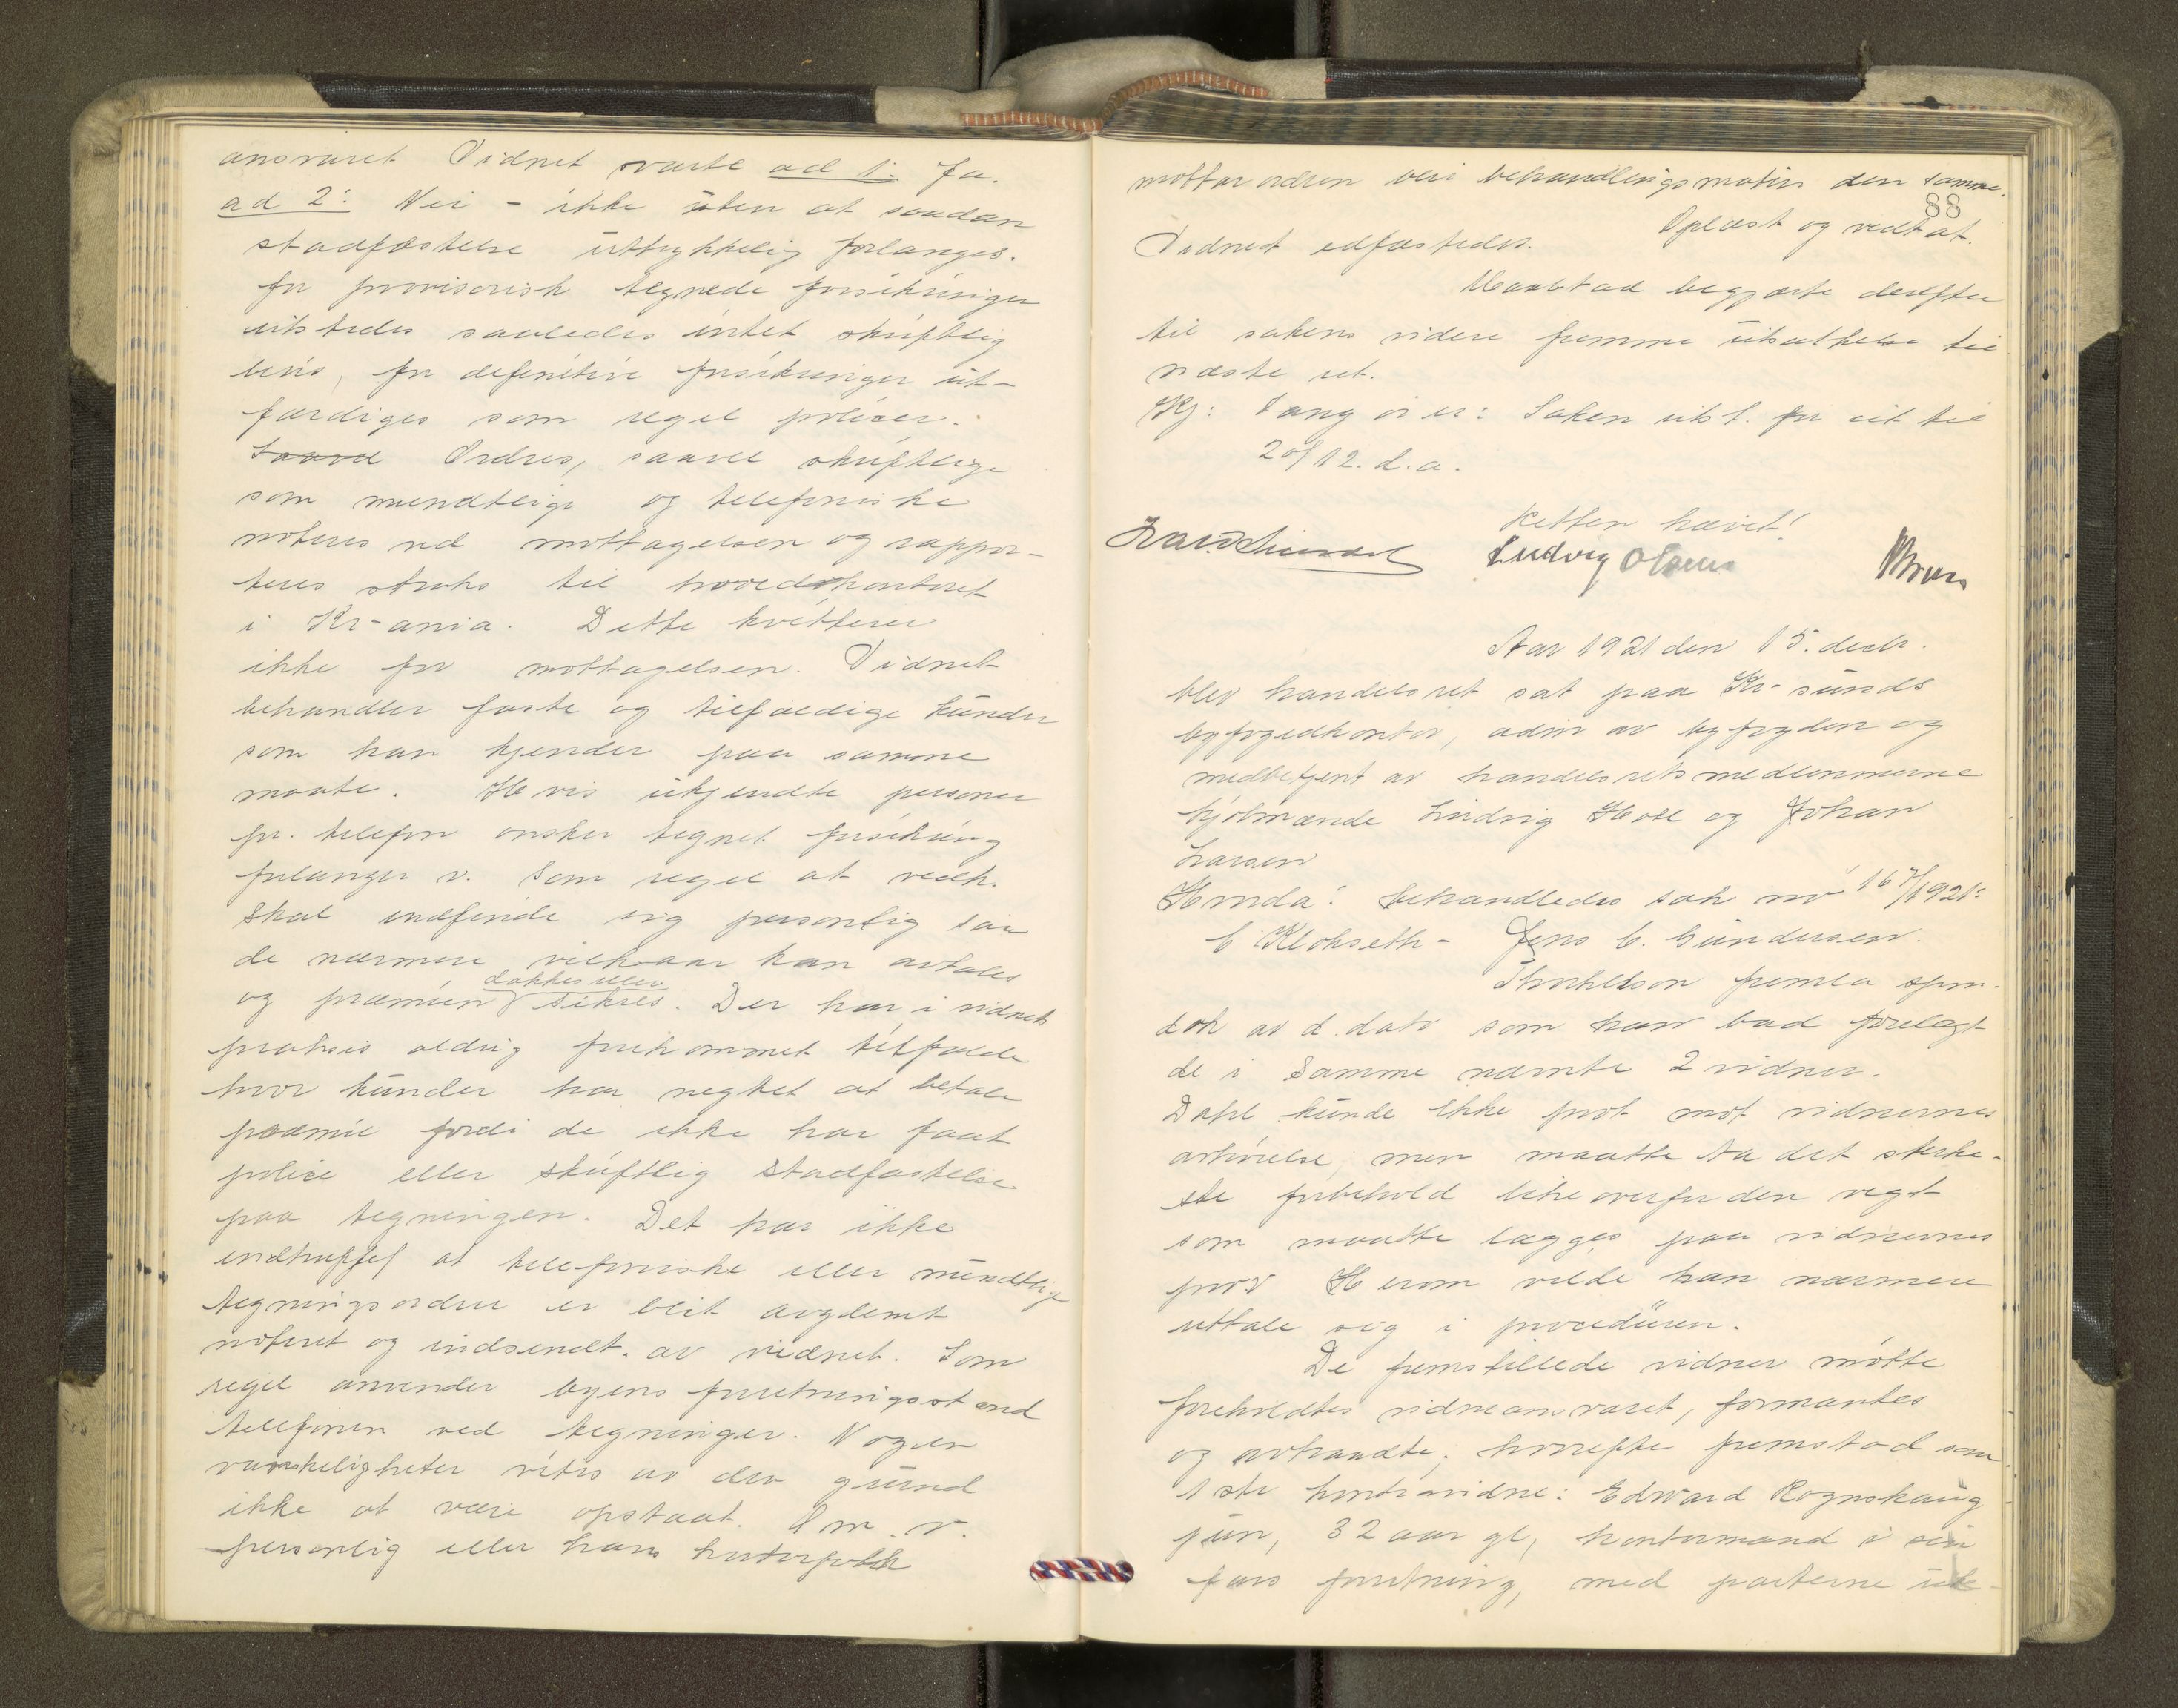 ansvaret Vidnet svarte ad 1: Ja.
ad 2: Nei - ikke uten at saadan
stadfæstelse uttrykkelig forlanges.
for provisorisk tegnede forsikringer
utstedes saaledes intet skriftlig
bevis, for definitive forsikringer ut-
færdiges som regel policer.
Saavel Ordres, saavel skriftlige
som mundtlige og telefoniske
noteres ved mottagelsen og rappor-
teres straks til hovedkontoret
i Kr-ania. Dette kvitterer
ikke for mottagelsen. Vidnet
behandler faste og tilfældige kunder
som han kjender paa samme
maate. Hvis ukjendte personer
pr. telefon ønsker tegnet forsikring
forlanger v. som regel at vedk.
skal indfinde sig personlig saa
de nærmere vilkaar kan avtales
dækkes eller
og præmien sikres. Der har i vidnets
praksis aldrig forekommet tilfælde
hvor kunder har negtet at betale
præmie fordi de ikke har faat
police eller skriftlig stadfæstelse
paa tegningen. Det har ikke
indtruffet at telefoniske eller mundtlige
tegningsordrer er blit avglemt
noteret og indsendt av vidnet. Som
regel anvender byens forretningsstand
telefonen ved tegninger. Nogen
vanskeligheter vites av den grund
ikke at være opstaat. Om v.
personlig eller hans kontorfolk
mottar ordren blir behandlingsmaaten den samme.
88
Oplæst og vedtat.
Vidnet edfæstedes.
begjærte derefter
til sakens videre fremme utsættelse til
næste ret.
Kj: Tang ivier: Saken utst. for eit til
20/12. d.a.
Retten hævet!
Ludvig Olsen
Aar 1921 den 15. decbr.
blev handelsret sat paa Kr-sunds
byfogedkontor, adm av byfogden og
medbetjent av handelsretsmedlemmerne
kjøbmænde Ludvig Holl og Johan
Larsen
Hvorda: behandledes sak nr 167/1921:
C Klokseth - Jens C. Gundersen.
Thorkildson fremla spm.
dok av d. dato som han bad forelagt
de i samme nævnte 2 vidner.
Dahl kunde ikke prot mot vidnernes
avhørelse, men maatte ta det sterke-
ste forbehold likeoverfor den vegt
som maatte lægges paa vidnernes
prov Herom vilde han nærmere
uttale sig i proceduren.
De fremstillede vidner møtte
foreholdtes vidneansvaret, formantes
og avtraadte; hvorefter fremstod som
1ste kontravidne: Edward Rognskaug
jun, 32 aar gl, kontormand i sin
fars forretning, med parterne ube-